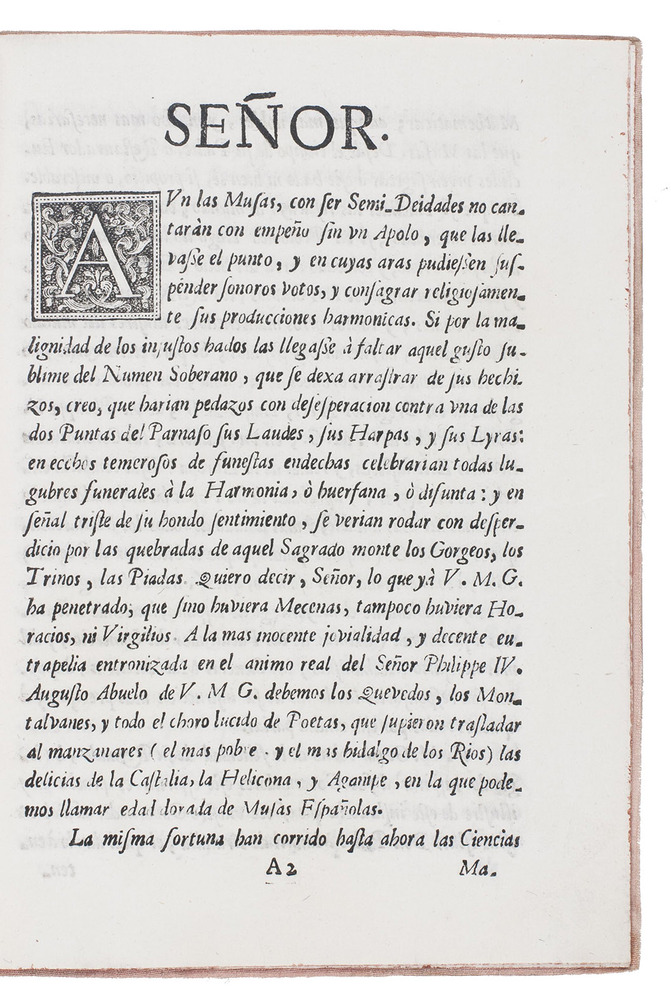 SEÑOR.
AVn las Muſas, con ſer Semi-Deidades no can-
taràn con empeño ſin vn Apolo, que las lle-
vaſſe el punto, y en cuyas aras pudieſſen ſuſ-
pénder ſonoros votos, y conſagrar religioſamen-
te ſus producciones harmonicas. Si por la ma-
lignidad de los injuſtos hados las llegaſſe à faltar aquel guſto ſu-
blime del Numen Soberano, que ſe dexa arraſtrar de ſus hechi-
zos, creo, que harian pedazos con deſeſperacion contra vna de las
dos Puntas del Parnaſo ſus Laudes, ſus Harpas, y ſus Lyras:
en ecchos temeroſos de funeſtas endechas celebrarian todas lu-
gubres funerales à la Harmonia, ò huerfana, ò difunta: y en
ſeñal triſte de ſu hondo ſentimiento, ſe verian rodar con deſper-
dicio por las quebradas de aquel Sagrado monte los Gorgeos, los
Trinos, las Piadas. Quiero decir, Señor, lo que yà V. M. G.
ha penetrado, que ſino huviera Mecenas, tampoco huviera Ho-
racios, ni Virgilios. A la mas inocente jovialidad, y decente eu-
trapelia entronizada en el animo real del Señor Philippe IV.
Auguſto Abuelo de V. M G. debemos los Quevedos, los Mon-
talvanes, y todo el choro lucido de Poetas, que ſupieron traſladar
al manzanares (el mas pobre. y el mas hidalgo de los Rios) las
delicias de la Caſtalia, la Helicona, y Aganipe, en la que pode-
mos llamar edad dorada de Muſas Eſpañolas.
La miſma fortuna han corrido haſta ahora las Ciencias
A2
Ma-